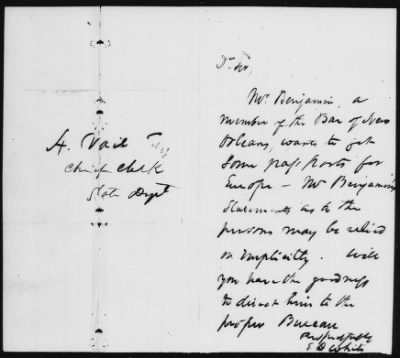 A. Vail
Chief Clerk
State Dept
Dr Sir,
Mr. Benjamin, a
member of the Bar of New
Orleans, wants to get
some passports for
Europe - Mr Benjamin
statements as to the
persons may be relied
on implicitly. Will
you have the goodness
to direct him to the
proper Bureau
Respectfully
E D White